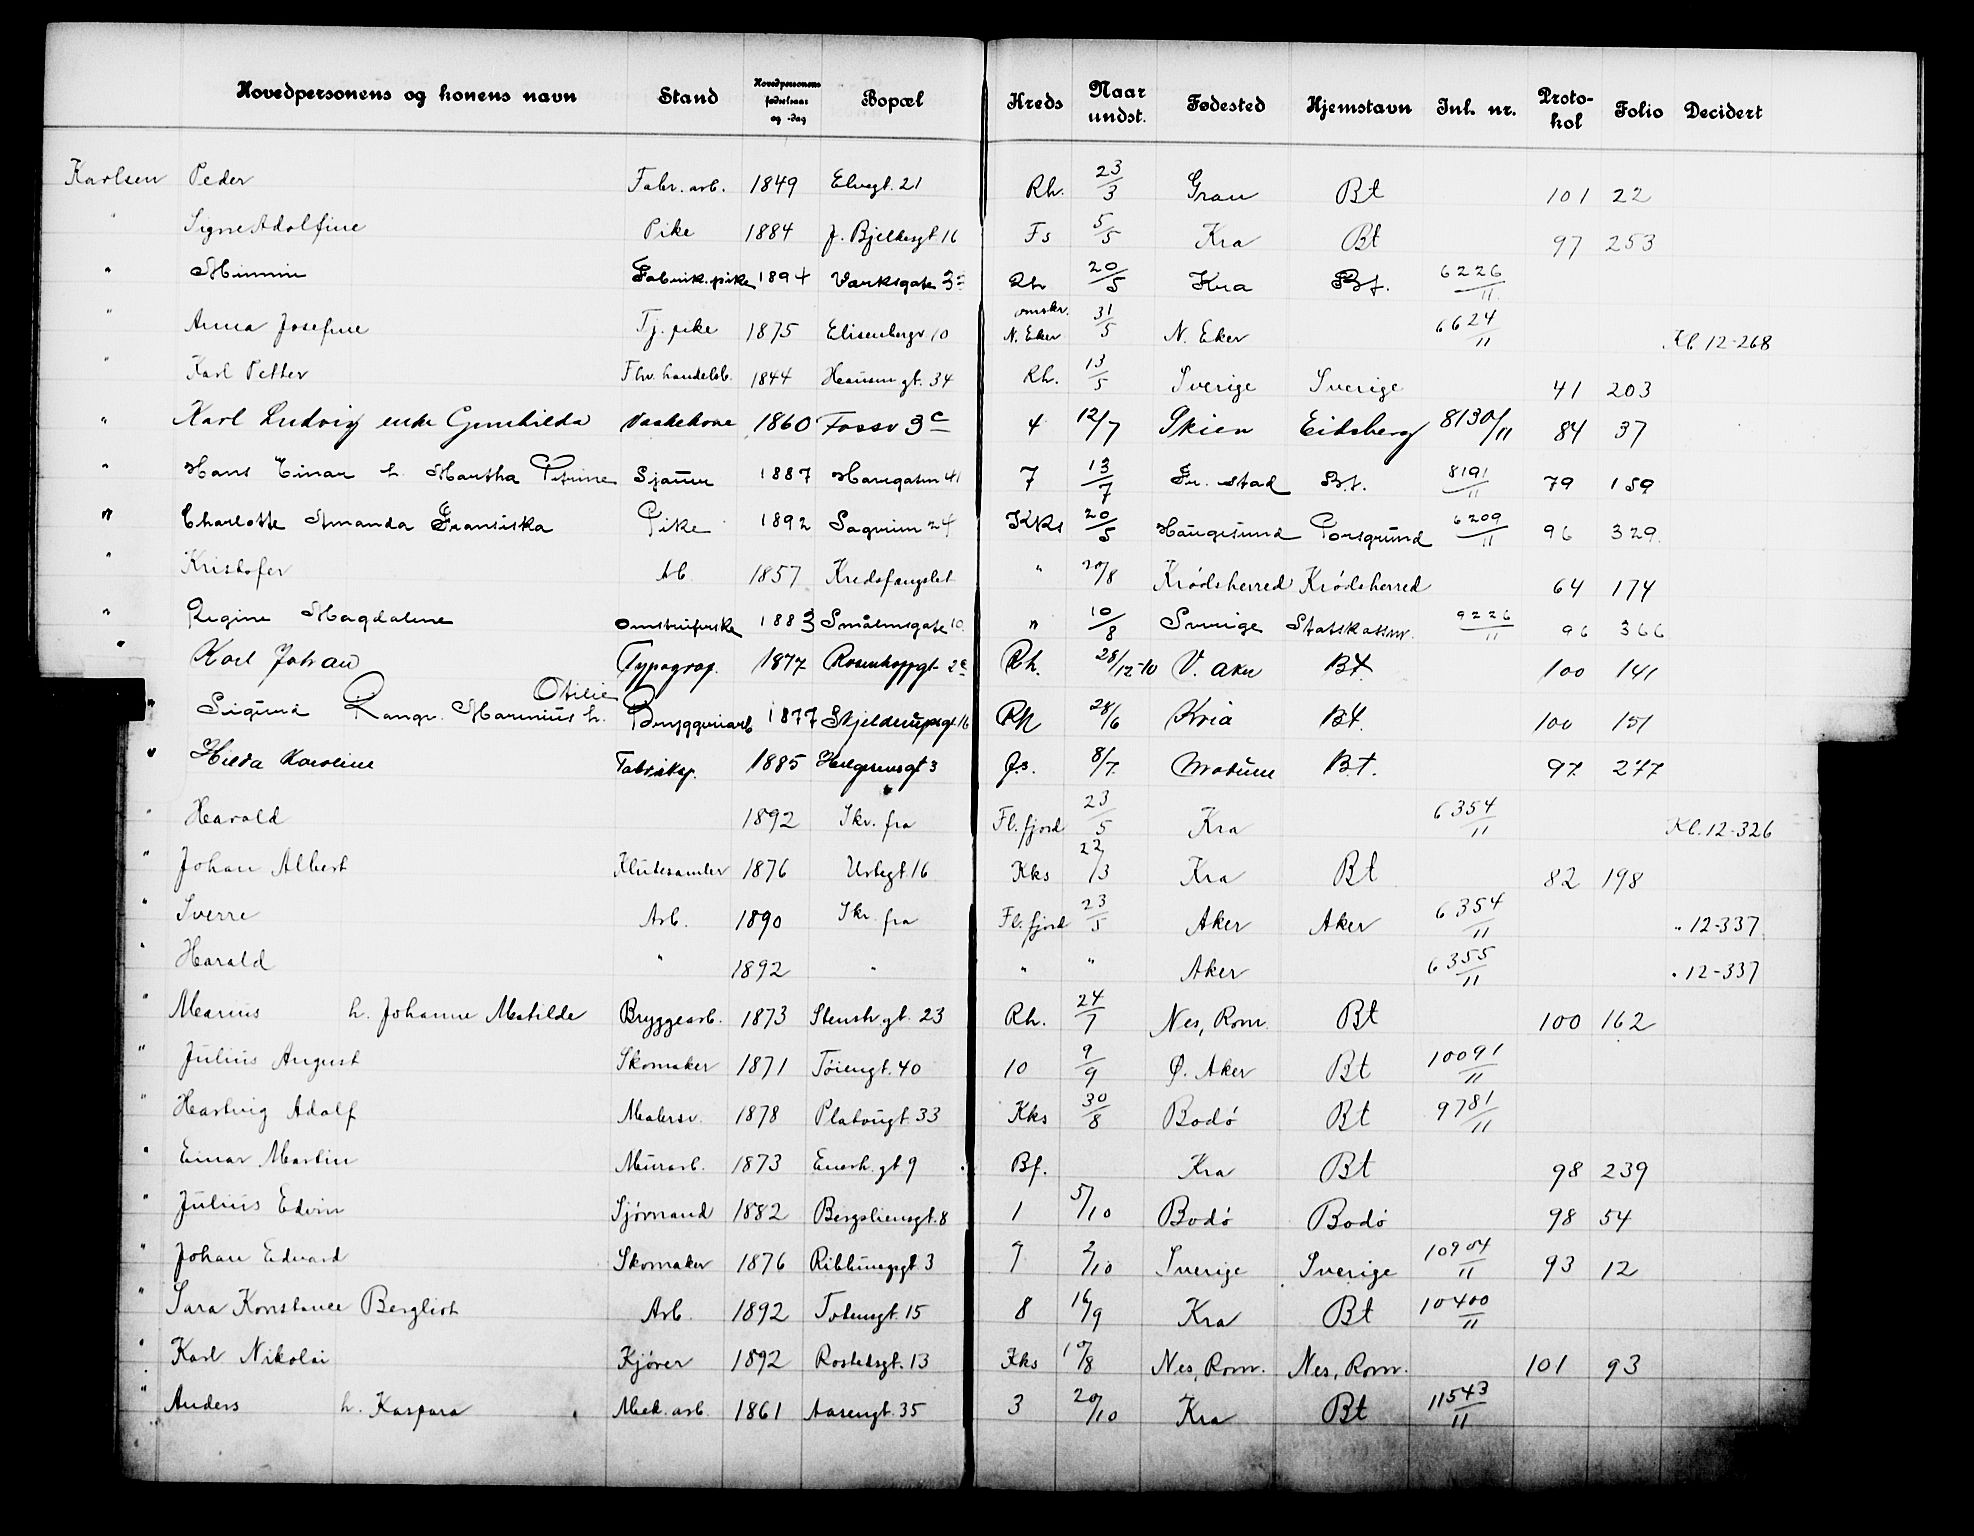 Hovedpersonens og konens navn Stand Hovedpersonens fødselsaar og -dag Bopæl Kreds Naar undst. Fødested Hjemstavn Ink. nr. Protokol Folio Decidert
Karlsen Peder Fabr. arb. 1849 Elvegt. 21 Rh. 23/3 Gran Bt 101 22
" Signe Adolfine Pike 1884 J. Bjelkesgt 16 Fs 5/5 Kra Bt 97 253
" Minnie Fabrik. pike 1894 Verksgate Rh 20/5 Kra Bt. 6226/11
" Anna Josefine Tj. pike 1875 Elisenbergv 10 omskr. N. Eker 31/5 N. Eker 6624/11 Kl. 12-268
" Karl Petter Fhv. handelsb. 1844 gt. 34 Rh. 13/5 Sverige Sverige 41 203
" Karl Ludvig enke Gunhilda Vaskekone 1860 Fossv 3c 4 12/7 Skien Eidsberg 8130/11 84 37
" Hans Einar h. Martha Petrine Sjauer 1887 41 7 13/7 Fr. stad Bt. 8191/11 79 159
" Charlotte Amanda Fransiska Pike 1892 Sagveien 24 Kks 20/5 Haugesund Porsgrund 6209/11 96 329.
" Kristofer Ab 1857 Kredsfængslet " /8 Krødsherred Krødsherred 64 174
" Regine Magdalene omstreiferske 1883 Smålensgate 10. " 10/8 Sverige Statskassen. 9226/11 96 366
" Karl Johan Typograf. 1877 Rosenhoffgt 2c Rh. 28/12-10 V. Aker Bt. 100 141
" Sigurd Ragnv. Marinius h. Otilie Bryggeriarb 1877 Skjelderupsgt 16 Rh 28/6 Kria Bt. 100 151
" Hilda Karoline Fabrikp. 1885 Helgesensgt 3 Fs. 8/7. Modum B.t. 97. 277
" Harald 1892 Skr. fra Fl. fjord 23/5 Kra 6354/11 Kl. 12-326
" Johan Albert Klutesamler 1876 Urtegt. 16 Kks 22/3 Kra Bt 82 198
" Sverre Arb. 1890 Skr. fra Fl. fjord 23/5 Aker Aker 6354/11 " 12-337
" Harald " 1892 " " " Aker 6355/11 " 12-337
" Marius h. Johanne Matilde Bryggearb. 1873 Stenstr. gt. 23 Rh. 24/7 Nes, Rom. Bt 100 162
" Julius August Skomaker 1871 Tøiengt. 40 10 9/9 Ø. Aker Bt 10091/11
" Hartvig Adolf Malersv. 1878 Platougt. 33 Kks 30/8 Bodø Bt 9781/11
" Einar Martin Murarb. 1873 Enerh. gt 9 Bf. Kra Bt 98 239
" Julius Edvin Sjømand 1882 Bergsliensgt. 8 1 5/10 Bodø Bodø 98 54
" Johan Edvard Skomaker 1876 Ribbungsgt 3 7 2/10 Sverige Sverige 10904/11 93 12
" Sara Konstance Bergliot Arb. 1892 Totensgt. 15 8 16/9 Kra Bt 10400/11
" Karl Nikolai Kjører 1892 Rostedsgt. 13 Kks /8 Nes, Rom. Nes, Rom. 101 93
" Anders h. Kaspara Mek. arb. 1861 Aasengt. 35 3 20/10 Kra Bt 11543/11